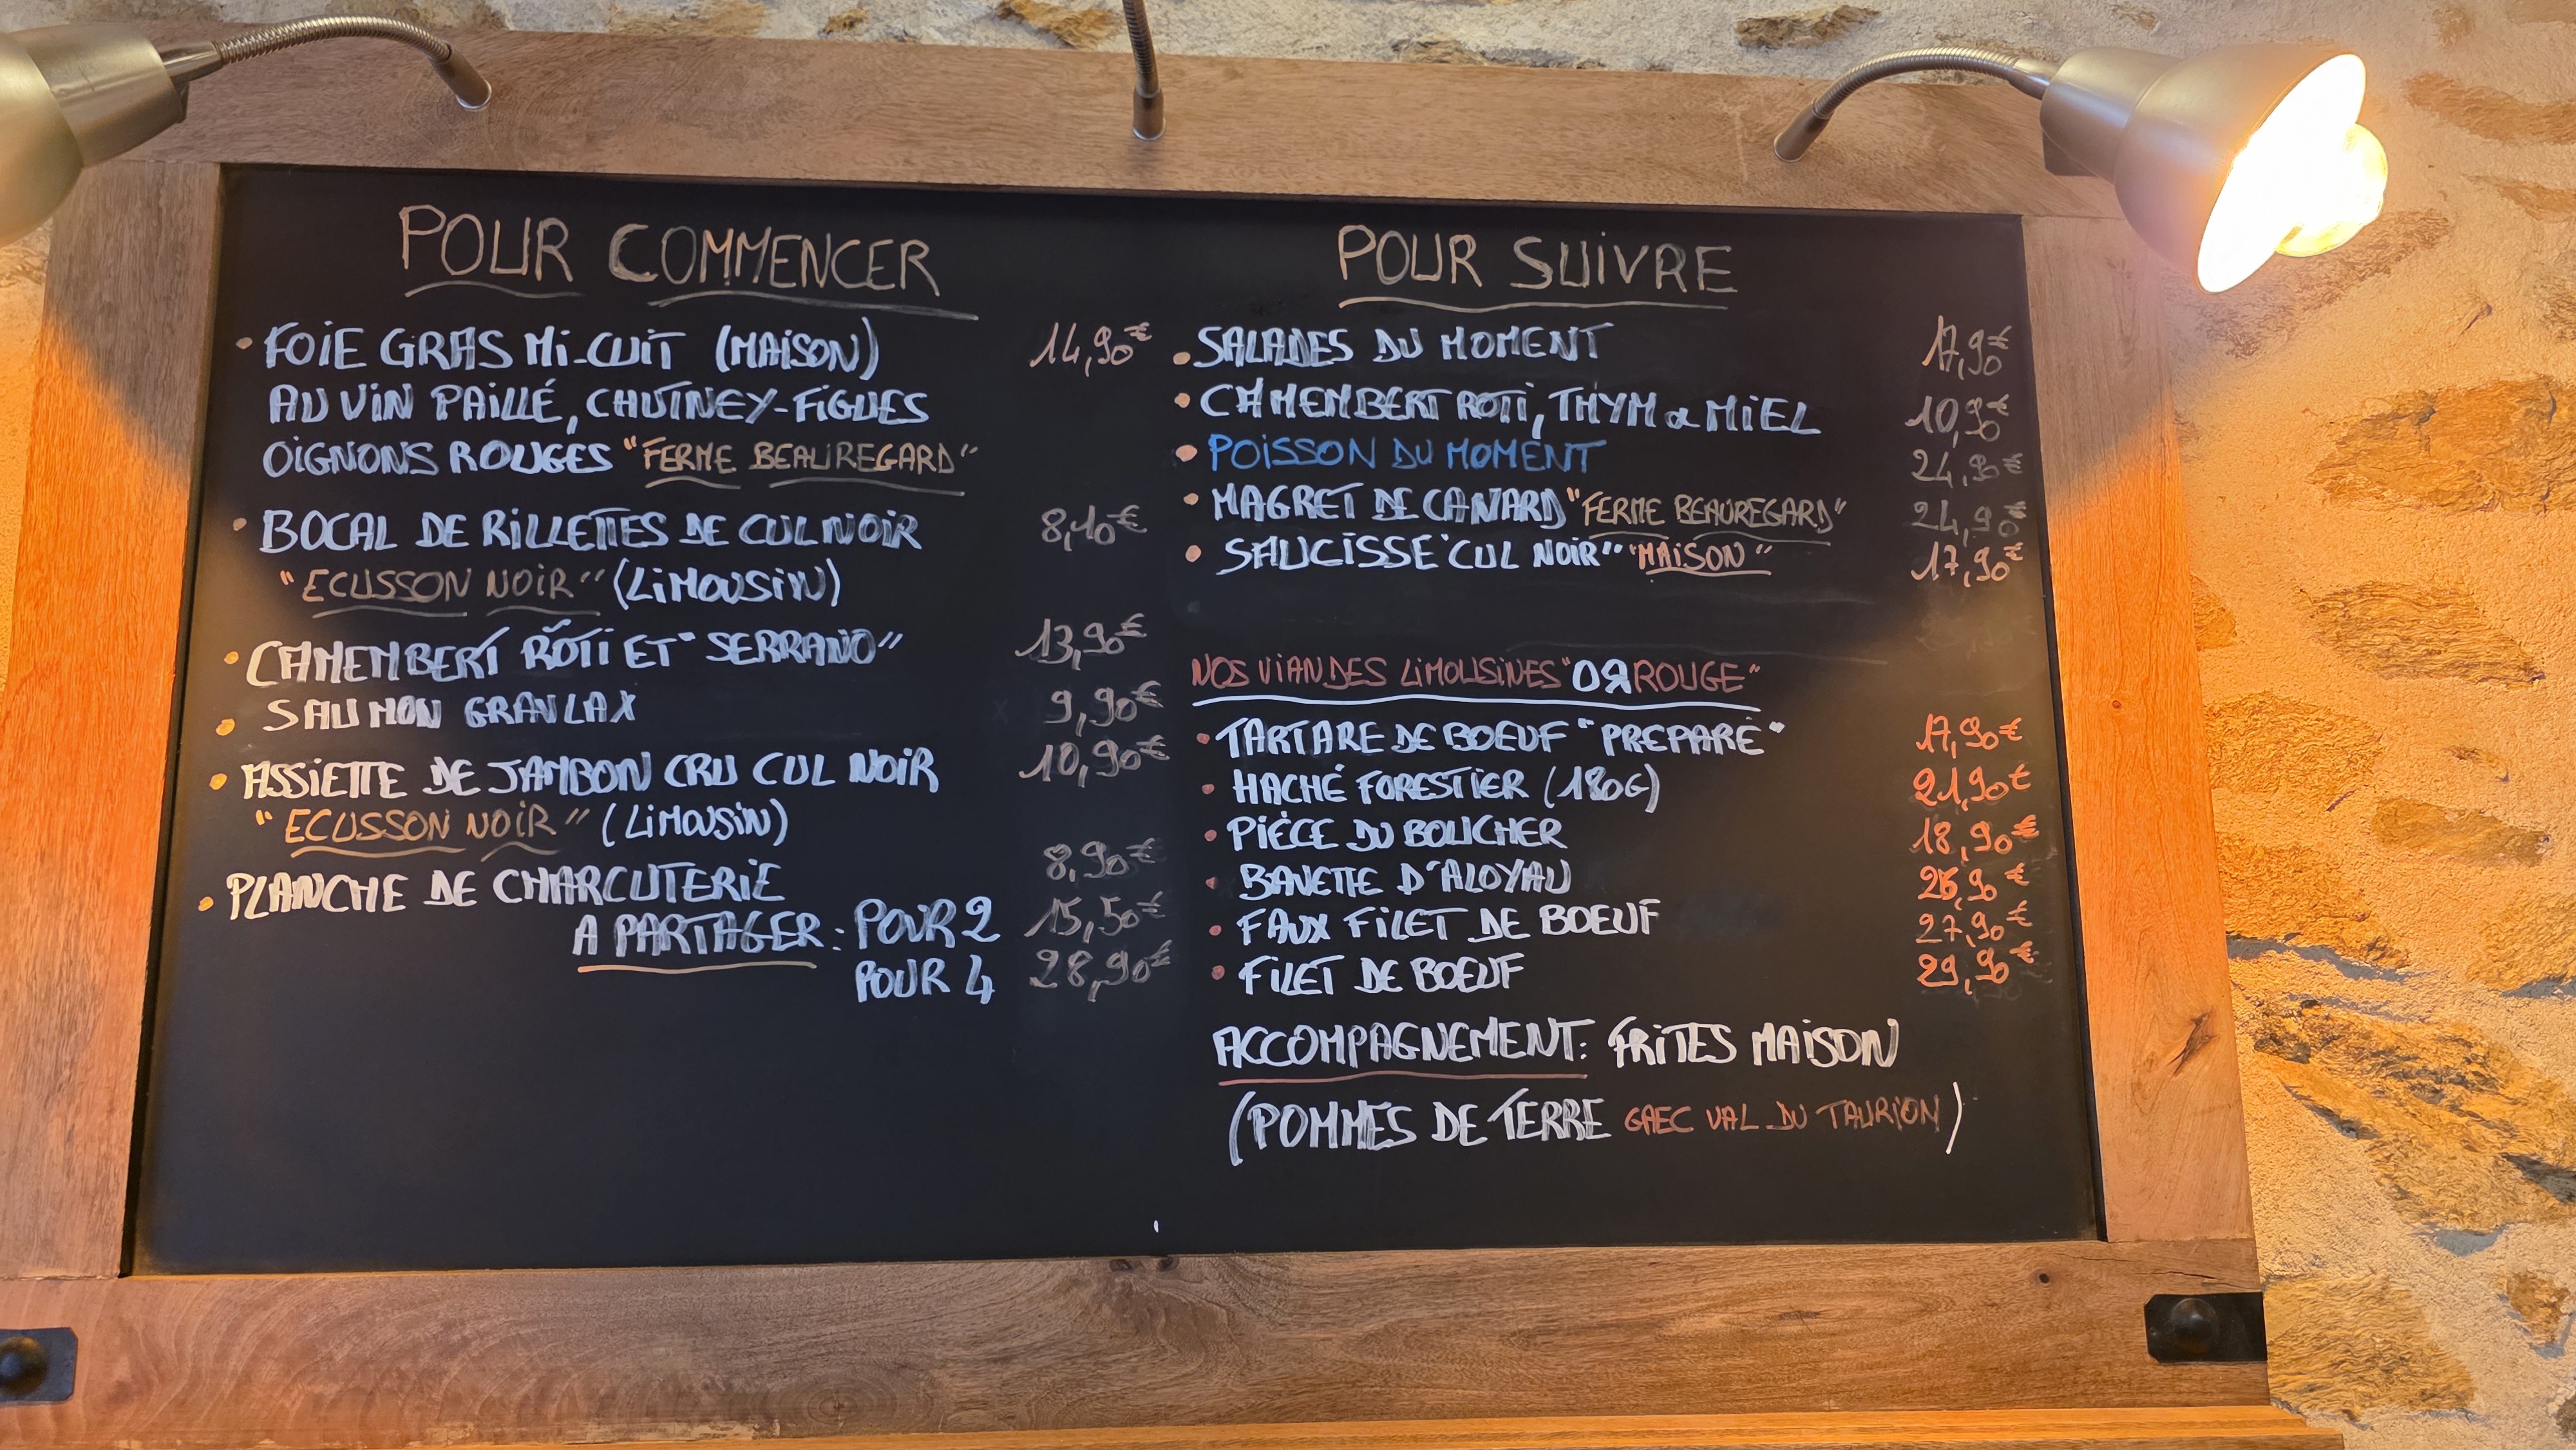 POUR COMMENCER
• FOIE GRAS MI-CUIT (MAISON) 14,90€
AU VIN PAILLÉ, CHUTNEY-FIGUES
OIGNONS ROUGES "FERME BEAUREGARD"
• BOCAL DE RILLETTES DE CUL NOIR 8,10€
"ECUSSON NOIR" (LIMOUSIN)
• CAMEMBERT RÔTI ET "SERRANO" 13,90€
• SAUMON GRAVLAX 9,90€
• ASSIETTE DE JAMBON CRU CUL NOIR 10,90€
"ECUSSON NOIR" (LIMOUSIN)
• PLANCHE DE CHARCUTERIE 8,90€
A PARTAGER : POUR 2 15,50€
POUR 4 28,90€
POUR SUIVRE
• SALADES DU MOMENT 17,90€
• CAMEMBERT ROTI, THYM & MIEL 10,90€
• POISSON DU MOMENT 24,90€
• MAGRET DE CANARD "FERME BEAUREGARD" 24,90€
• SAUCISSE "CUL NOIR" "MAISON" 17,90€
NOS VIANDES LIMOUSINES "OR ROUGE"
• TARTARE DE BOEUF "PREPARÉ" 17,90€
• HACHÉ FORESTIER (180G) 21,90€
• PIÈCE DU BOUCHER 18,90€
• BAVETTE D'ALOYAU
• FAUX FILET DE BOEUF 27,90€
• FILET DE BOEUF 29,90€
ACCOMPAGNEMENT: FRITES MAISON
(POMMES DE TERRE GAEC VAL DU TAURION)